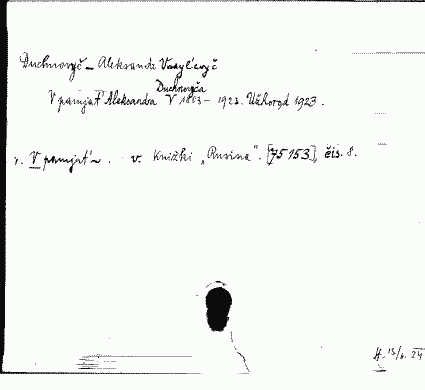 Duchnovyč - Aleksandr Vasyl'evyč
Duchnovyča
V pamjat' Aleksandra V 1803 - 1923. Užhorod 1923.
v. V pamjat' ~. v. Knižki „Rusina". [75153], čis. 8.
H. 13/6. 24